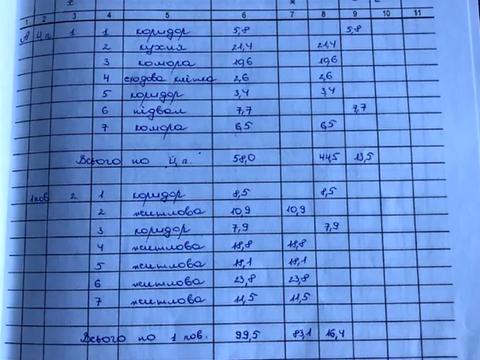 1 2 3 4 5 6 7 8 9 10 11
А Ц.п. 1 1 коридор 5,8 5,8
2 кухня 21,4 21,4
3 комора 10,6 10,6
4 сходова клітка 2,6 2,6
5 коридор 3,4 3,4
6 підвал 7,7 7,7
7 комора 6,5 6,5
Всього по Ц.п. 58,0 44,5 13,5
1 пов 2 1 коридор 8,5 8,5
2 житлова 10,9 10,9
3 коридор 7,9 7,9
4 житлова 18,8 18,8
5 житлова 18,1 18,1
6 житлова 23,8 23,8
7 житлова 11,5 11,5
Всього по 1 пов. 99,5 83,1 16,4